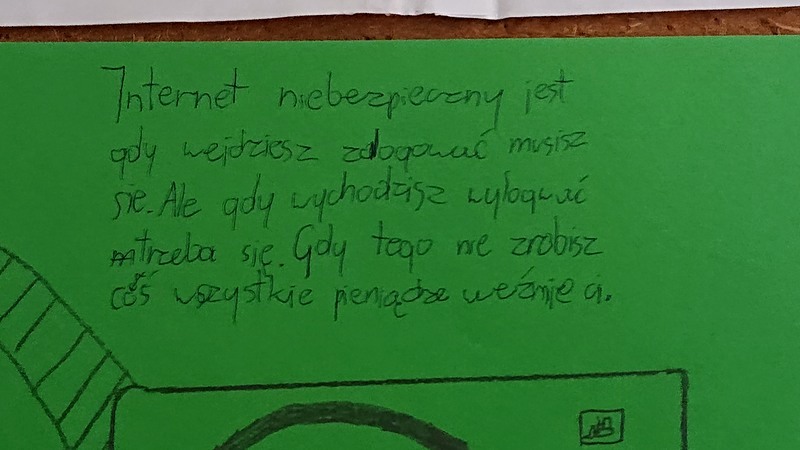 Internet niebezpieczny jest
gdy wejdziesz zalogować musisz
się. Ale gdy wychodzisz wylogwać
trzeba się. Gdy tego nie zrobisz
coś wszystkie pieniądze weźmie ci.